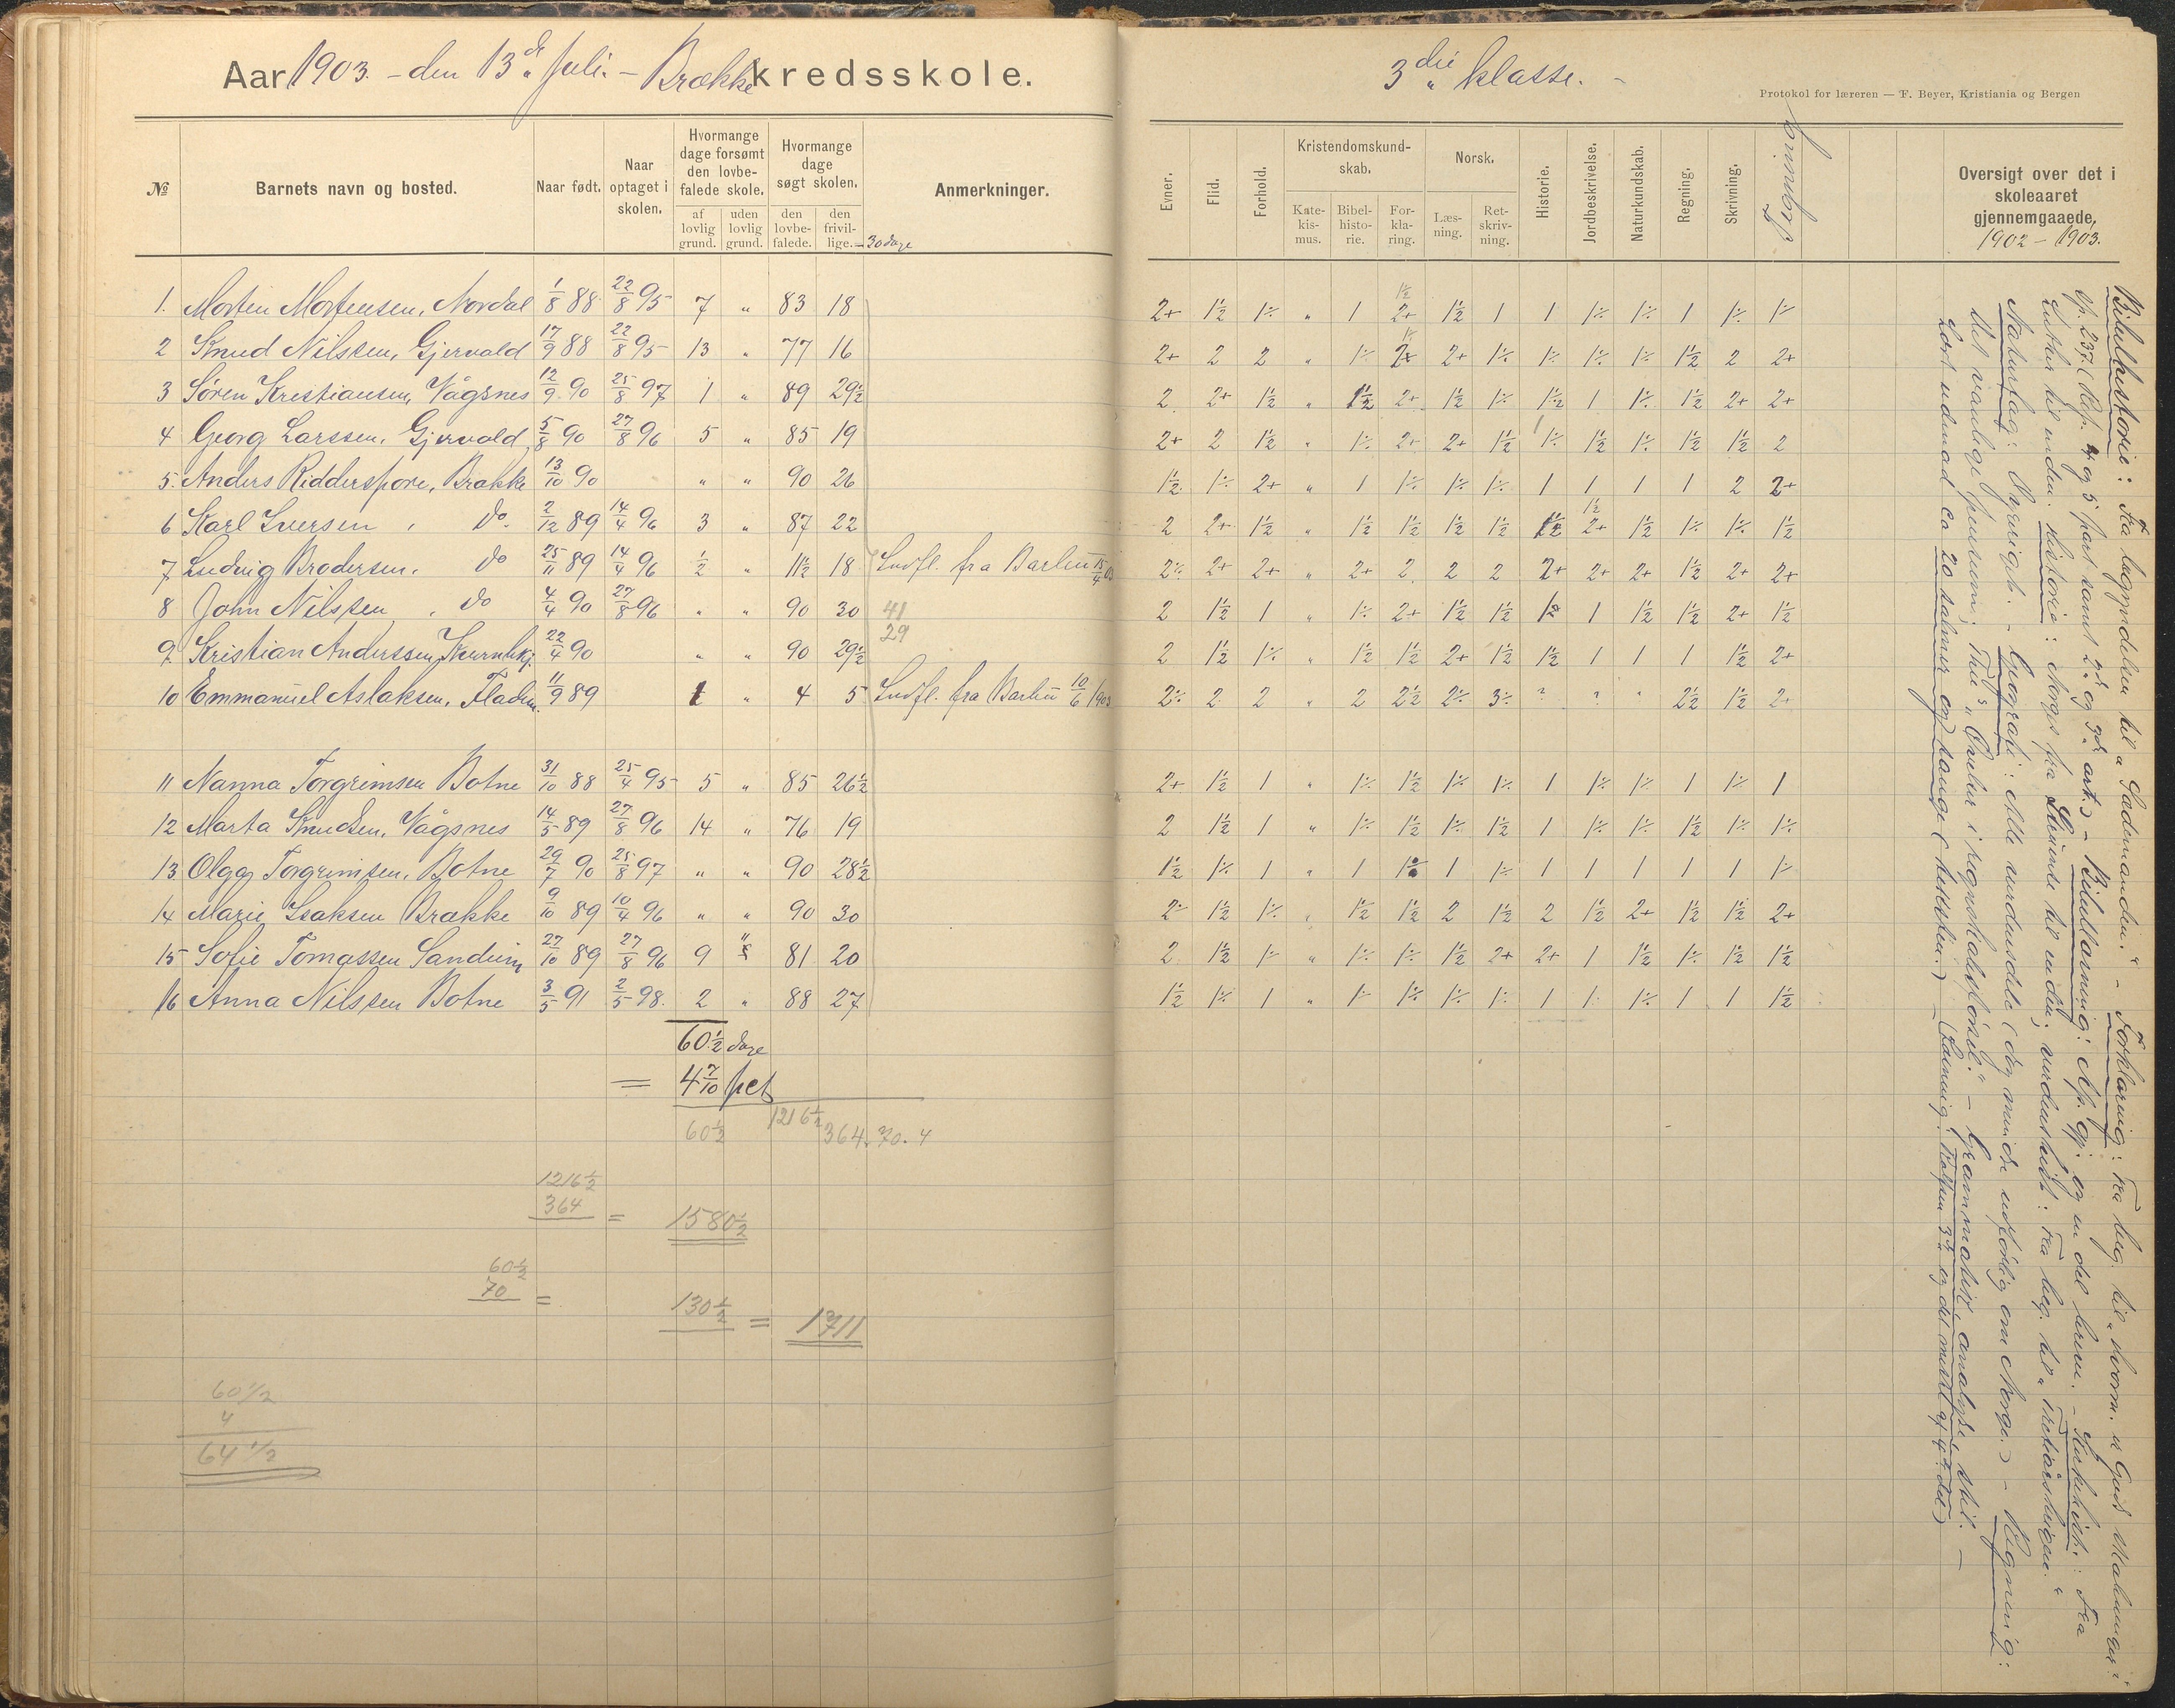 Aar 1903. – den 13de Juli. – Brække kredsskole.
3die klasse. –
Protokol for læreren — F. Beyer, Kristiania og Bergen
№ Barnets navn og bosted. Naar født. Naar optaget i skolen. Hvormange dage forsømt den lovbefalede skole. af lovlig grund. uden lovlig grund. Hvormange dage søgt skolen. den lovbefalede. den frivillige. – 30 dage Anmerkninger.
Evner. Flid. Forhold. Kristendomskundskab. Katekismus. Bibelhistorie. Forklaring. Norsk. Læsning. Retskrivning. Historie. Jordbeskrivelse. Naturkundskab. Regning. Skrivning. Oversigt over det i skoleaaret gjennemgaaede,
1902 – 1903.
1. Morten Mortensen, Nordal 1/8 88 22/8 95 7 " 83 18 2+ 1½ 1÷ " 1 1½ 2+ 1½ 1 1 1÷ 1÷ 1 1÷ 1÷
2 Knud Nilssen, Gjervold 17/9 88 22/8 95 13 " 77 16 2+ 2 2 " 1÷ 2+ 2+ 1÷ 1÷ 1÷ 1÷ 1½ 2 2+
3 Søren Kristiansen, Vågsnes 12/9 90 25/8 97 1 " 89 29½ 2 2+ 1½ " 1½ 2+ 1½ 1÷ 1½ 1 1÷ 1½ 2+ 2+
4 Georg Larssen, Gjervold 5/8 90 27/8 96 5 " 85 19 2+ 2 1½ " 1÷ 2+ 2+ 1½ 1÷ 1½ 1÷ 1½ 1½ 2
5. Anders Ridderspore, Brække 13/10 90 " " 90 26 1½ 1÷ 2+ " 1 1÷ 1÷ 1÷ 1 1 1 1 2 2+
6 Karl Iversen, do. 2/12 89 14/4 96 3 " 87 22 2 2+ 1½ " 1½ 1½ 1½ 1½ 1½ 1½ 2+ 1½ 1÷ 1÷ 1½
7 Ludvig Brodersen, do 25/11 89 14/4 96 ½ " 11½ 18 Indfl. fra Barbu 15/4 03 2÷ 2+ 2+ " 2+ 2 2 2 2+ 2+ 2+ 1½ 2+ 2+
8 John Nilssen, do 4/4 90 27/8 96 " " 90 30 41 2 1½ 1 " 1÷ 2+ 1½ 1½ 1÷ 1 1½ 1½ 2+ 1½
29
9. Kristian Anderssen, 22/4 90 " " 90 29½ 2 1½ 1÷ " 1½ 1½ 2+ 1½ 1½ 1 1 1 1½ 2+
10 Emmanuel Aslaksen, Fladen. 11/9 89 1 " 4 5 Indfl. fra Barbu 10/6 1903 2÷ 2 2 " 2 2½ 2÷ 3÷ " " " 2½ 1½ 2+
11 Nanna Torgrimsen Botne 31/10 88 25/4 95 5 " 85 26½ 2+ 1½ 1 " 1÷ 1½ 1÷ 1÷ 1 1÷ 1÷ 1 1÷ 1
12 Marta Knudsen, Vågsnes 14/5 89 27/8 96 14 " 76 19 2 1½ 1 " 1÷ 1½ 1÷ 1½ 1 1÷ 1÷ 1½ 1÷ 1÷
13 Olga Torgrimsen, Botne 29/7 90 25/8 97 " " 90 28½ 1½ 1÷ 1 " 1 1÷ 1 1÷ 1 1 1 1 1 1÷
14 Marie Isaksen Brække 9/10 89 10/4 96 " " 90 30 2÷ 1½ 1÷ " 1½ 1½ 2 1½ 2 1½ 2+ 1½ 1½ 2+
15 Sofie Tomassen Sandum 27/10 89 27/8 96 9 " 81 20 2 1½ 1÷ " 1÷ 1÷ 1½ 2+ 2+ 1 1½ 1÷ 1½ 1½
16 Anna Nilssen Botne 3/5 91 2/5 98. 2 " 88 27 1½ 1÷ 1 " 1÷ 1÷ 1÷ 1÷ 1 1÷ 1÷ 1 1 1½
60½ dage
= 4 7/10 pct
60½ 1216½ 364. 70. 4
1216½
364 = 1580½
60½
70 = 130½ = 1711
60 1/2
4
64 1/2
Bibelhistorie: Fra begyndelsen til „Sædemanden." – Forklaring: Fra beg. til
sp. 237. (Rep. 4 og 5 part samt 2den og 3die art.) – Bibellæsning: Ap. gj. og en del breve. – Kirkehist.: Fra
Luther til enden. Historie: Norges fra til enden; verdenshist.: Fra beg. til „Trediveårskrigen."
Naturfag: – Geografi: Alle verdensdele (dog mindre udførlig om Norge.) – Regning:
– Grammatik, analyse, stil. –
Lært udenad ca 20 salmer og sange (